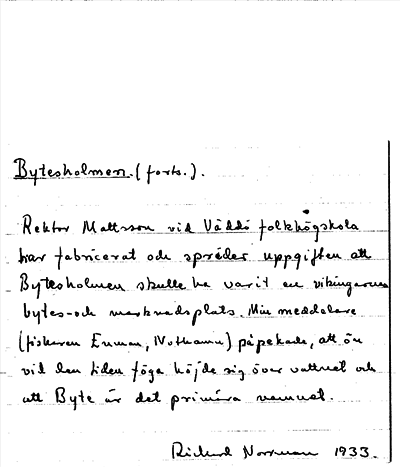 Bytesholmen. (forts.).
Rektor Mattsson vid Väddö folkhögskola
har fabricerat och sprider uppgiften att
Bytesholmen skulle ha varit en vikingarnas
bytes- och marknadsplats. Min meddelare
(fiskaren Enman, Nothamn) påpekade, att ön
vid den tiden föga höjde sig över vattnet och
att Byte är det primära namnet.
Richard Norrman 1933.